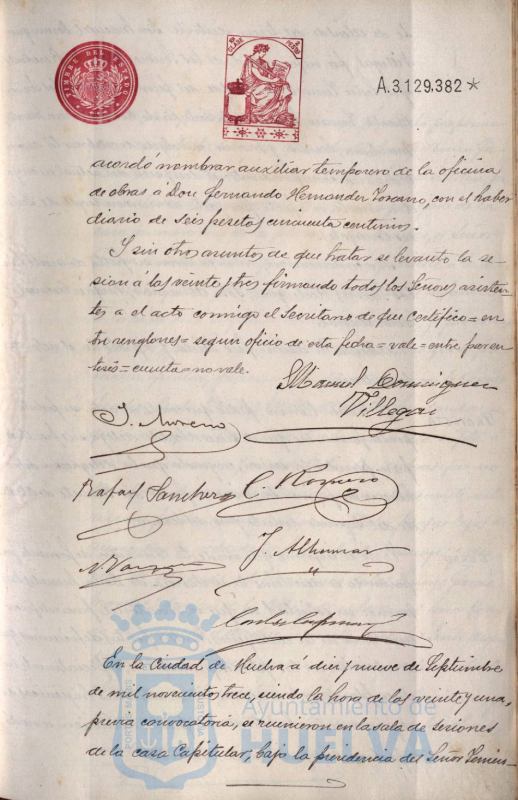 TIMBRE DEL ESTADO
A.3.129.382*
acordó nombrar auxiliar temporero de la oficina
de obras á Don Fernando Hernandez Toscano, con el haber
diario de seis pesetas cincuenta centimos.
Y sin otros asuntos de que tratar se levantó la se-
sion á las veinte y tres firmando todos los Señores asisten-
tes a el acto conmigo el Secretario de que certifico = en-
tre renglones = segun oficio de esta fecha = vale = entre paren-
tesis = cuenta = no vale.
Manuel Dominguez
Villegas
J. Moreno
Rafael Sanchez C. Romero
J. Alhumar
En la Ciudad de Huelva á diez y nueve de Septiembre
de mil novecientos trece, siendo la hora de las veinte y una,
previa convocatoria, se reunieron en la sala de sesiones
de la casa Capitular, bajo la presidencia del Señor Tenien-
Ayuntamiento de
HUELVA